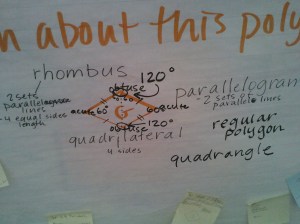 n about this poly
rhombus
120°
obtuse
- 2 sets
parallel
lines
- 4 equal sides
length
acute 60°
G
60° acute
obtuse
120°
parallelogram
- 2 sets
parallel lines
quadrilateral
4 sides
regular
polygon
quadrangle